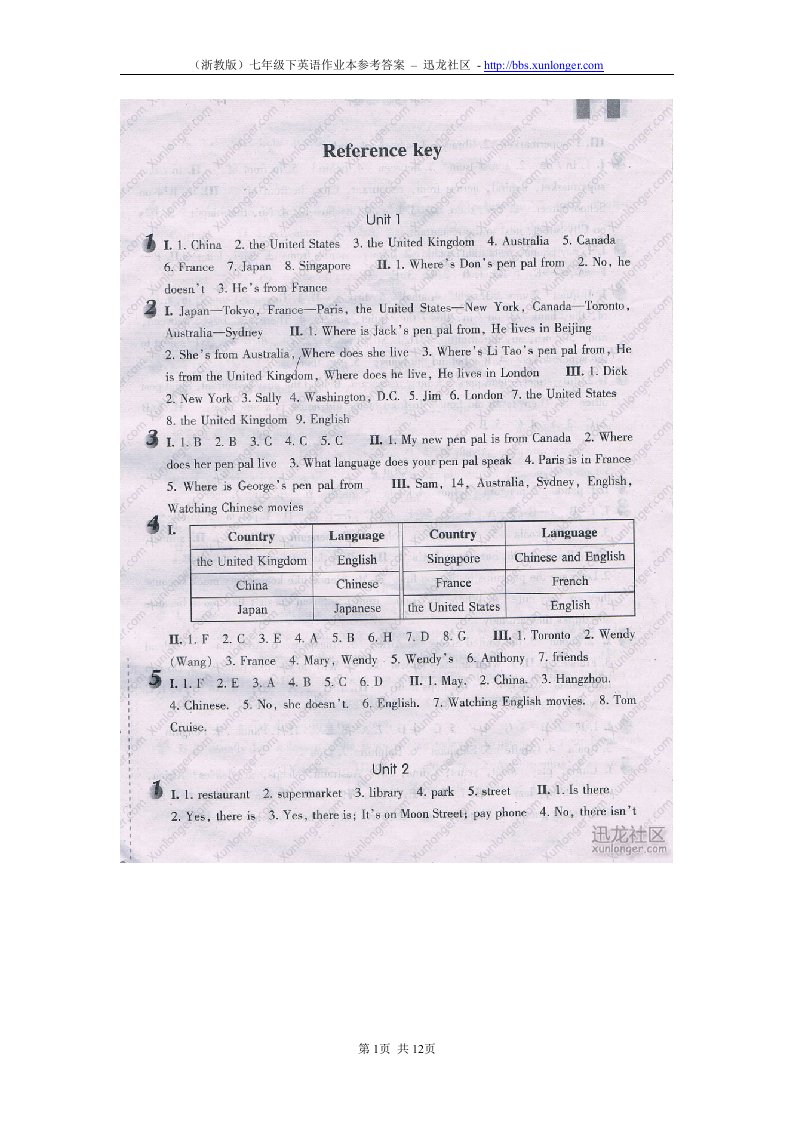 （浙教版）七年级下英语作业本参考答案 – 迅龙社区 - http://bbs.xunlonger.com
Reference key
Unit 1
1 I. 1. China 2. the United States 3. the United Kingdom 4. Australia 5. Canada
6. France 7. Japan 8. Singapore II. 1. Where's Don's pen pal from 2. No, he
doesn't 3. He's from France
2 I. Japan—Tokyo, France—Paris, the United States—New York, Canada—Toronto,
Australia—Sydney II. 1. Where is Jack's pen pal from, He lives in Beijing
2. She's from Australia, Where does she live 3. Where's Li Tao's pen pal from, He
is from the United Kingdom, Where does he live, He lives in London III. 1. Dick
2. New York 3. Sally 4. Washington, D.C. 5. Jim 6. London 7. the United States
8. the United Kingdom 9. English
3 I. 1. B 2. B 3. C 4. C 5. C II. 1. My new pen pal is from Canada 2. Where
does her pen pal live 3. What language does your pen pal speak 4. Paris is in France
5. Where is George's pen pal from III. Sam, 14, Australia, Sydney, English,
Watching Chinese movies
4 I.
Country Language Country Language
the United Kingdom English Singapore Chinese and English
China Chinese France French
Japan Japanese the United States English
II. 1. F 2. C 3. E 4. A 5. B 6. H 7. D 8. G III. 1. Toronto 2. Wendy
(Wang) 3. France 4. Mary, Wendy 5. Wendy's 6. Anthony 7. friends
5 I. 1. F 2. E 3. A 4. B 5. C 6. D II. 1. May. 2. China. 3. Hangzhou.
4. Chinese. 5. No, she doesn't. 6. English. 7. Watching English movies. 8. Tom
Cruise.
Unit 2
1 I. 1. restaurant 2. supermarket 3. library 4. park 5. street II. 1. Is there
2. Yes, there is 3. Yes, there is; It's on Moon Street; pay phone 4. No, there isn't
迅龙社区
xunlonger.com
第 1页 共 12页